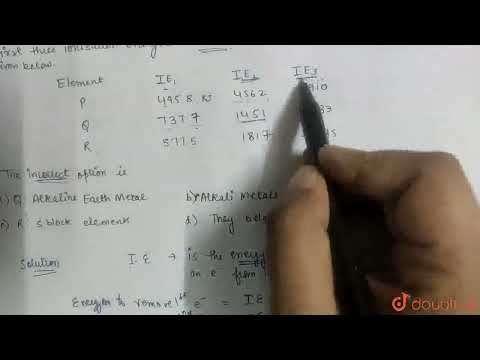 first three ionisation energ
given below.
Element IE₁ IE₂ IE₃
P 495.8 KJ 4562 910
Q 737.7 1451 33
R 577.5 1817 45
The incorrect option is
a) Q: Alkaline Earth Metal b) P Alkali Metals
c) R: s block elements d) They belo
Solution I.E → is the energy
an e⁻ from
Energy to remove 1st e⁻ = IE
doubtnut